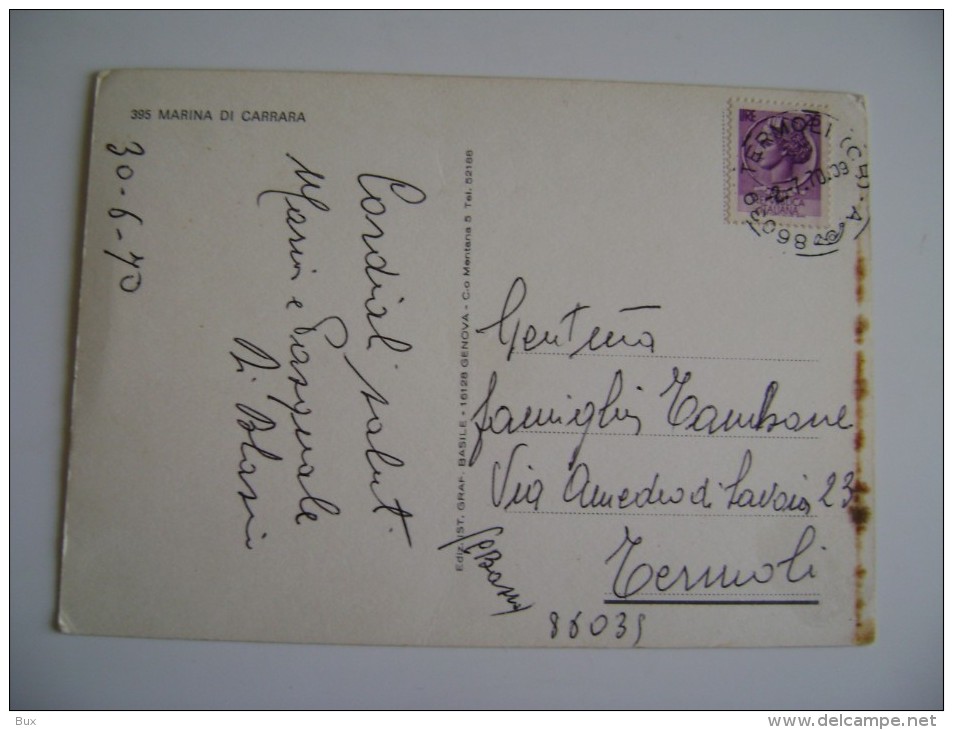 395 MARINA DI CARRARA
30-6-70
Cordiali saluti
Maria e Pasquale
Di Blasi
Ediz. IST. GRAF. BASILE - 16128 GENOVA - C.o Mentana 5 Tel. 52166
TERMOLI (CB) A
2-7-70.09
Gent.ma
famiglia Tambone
Via Amedeo di Savoia 23
Termoli
86039
Bux
www.delcampe.net